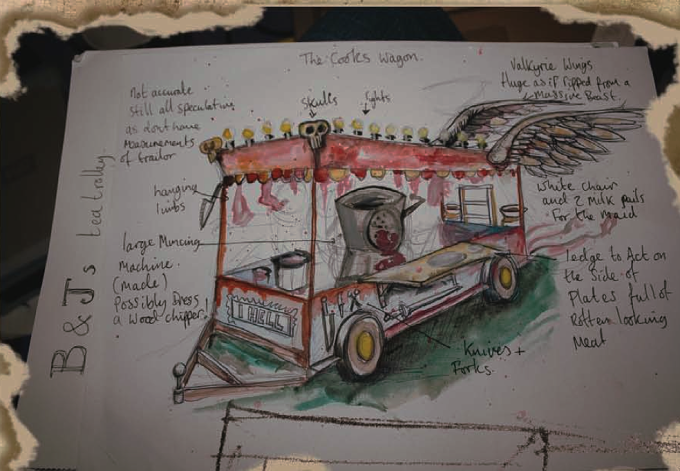 The Cooks Wagon.
Not accurate
still all speculation
as don't have
measurements
of trailor
skulls
lights
Valkyrie Wings
Huge as if ripped from a
massive Beast.
hanging
limbs
large Mincing
Machine.
(made)
Possibly Dress
a wood chipper.
white chair
and 2 Milk pails
For the maid
ledge to Act on
the side of
Plates full of
Rotten looking
Meat
Knives +
Forks.
HELL
B & J's tea trolley